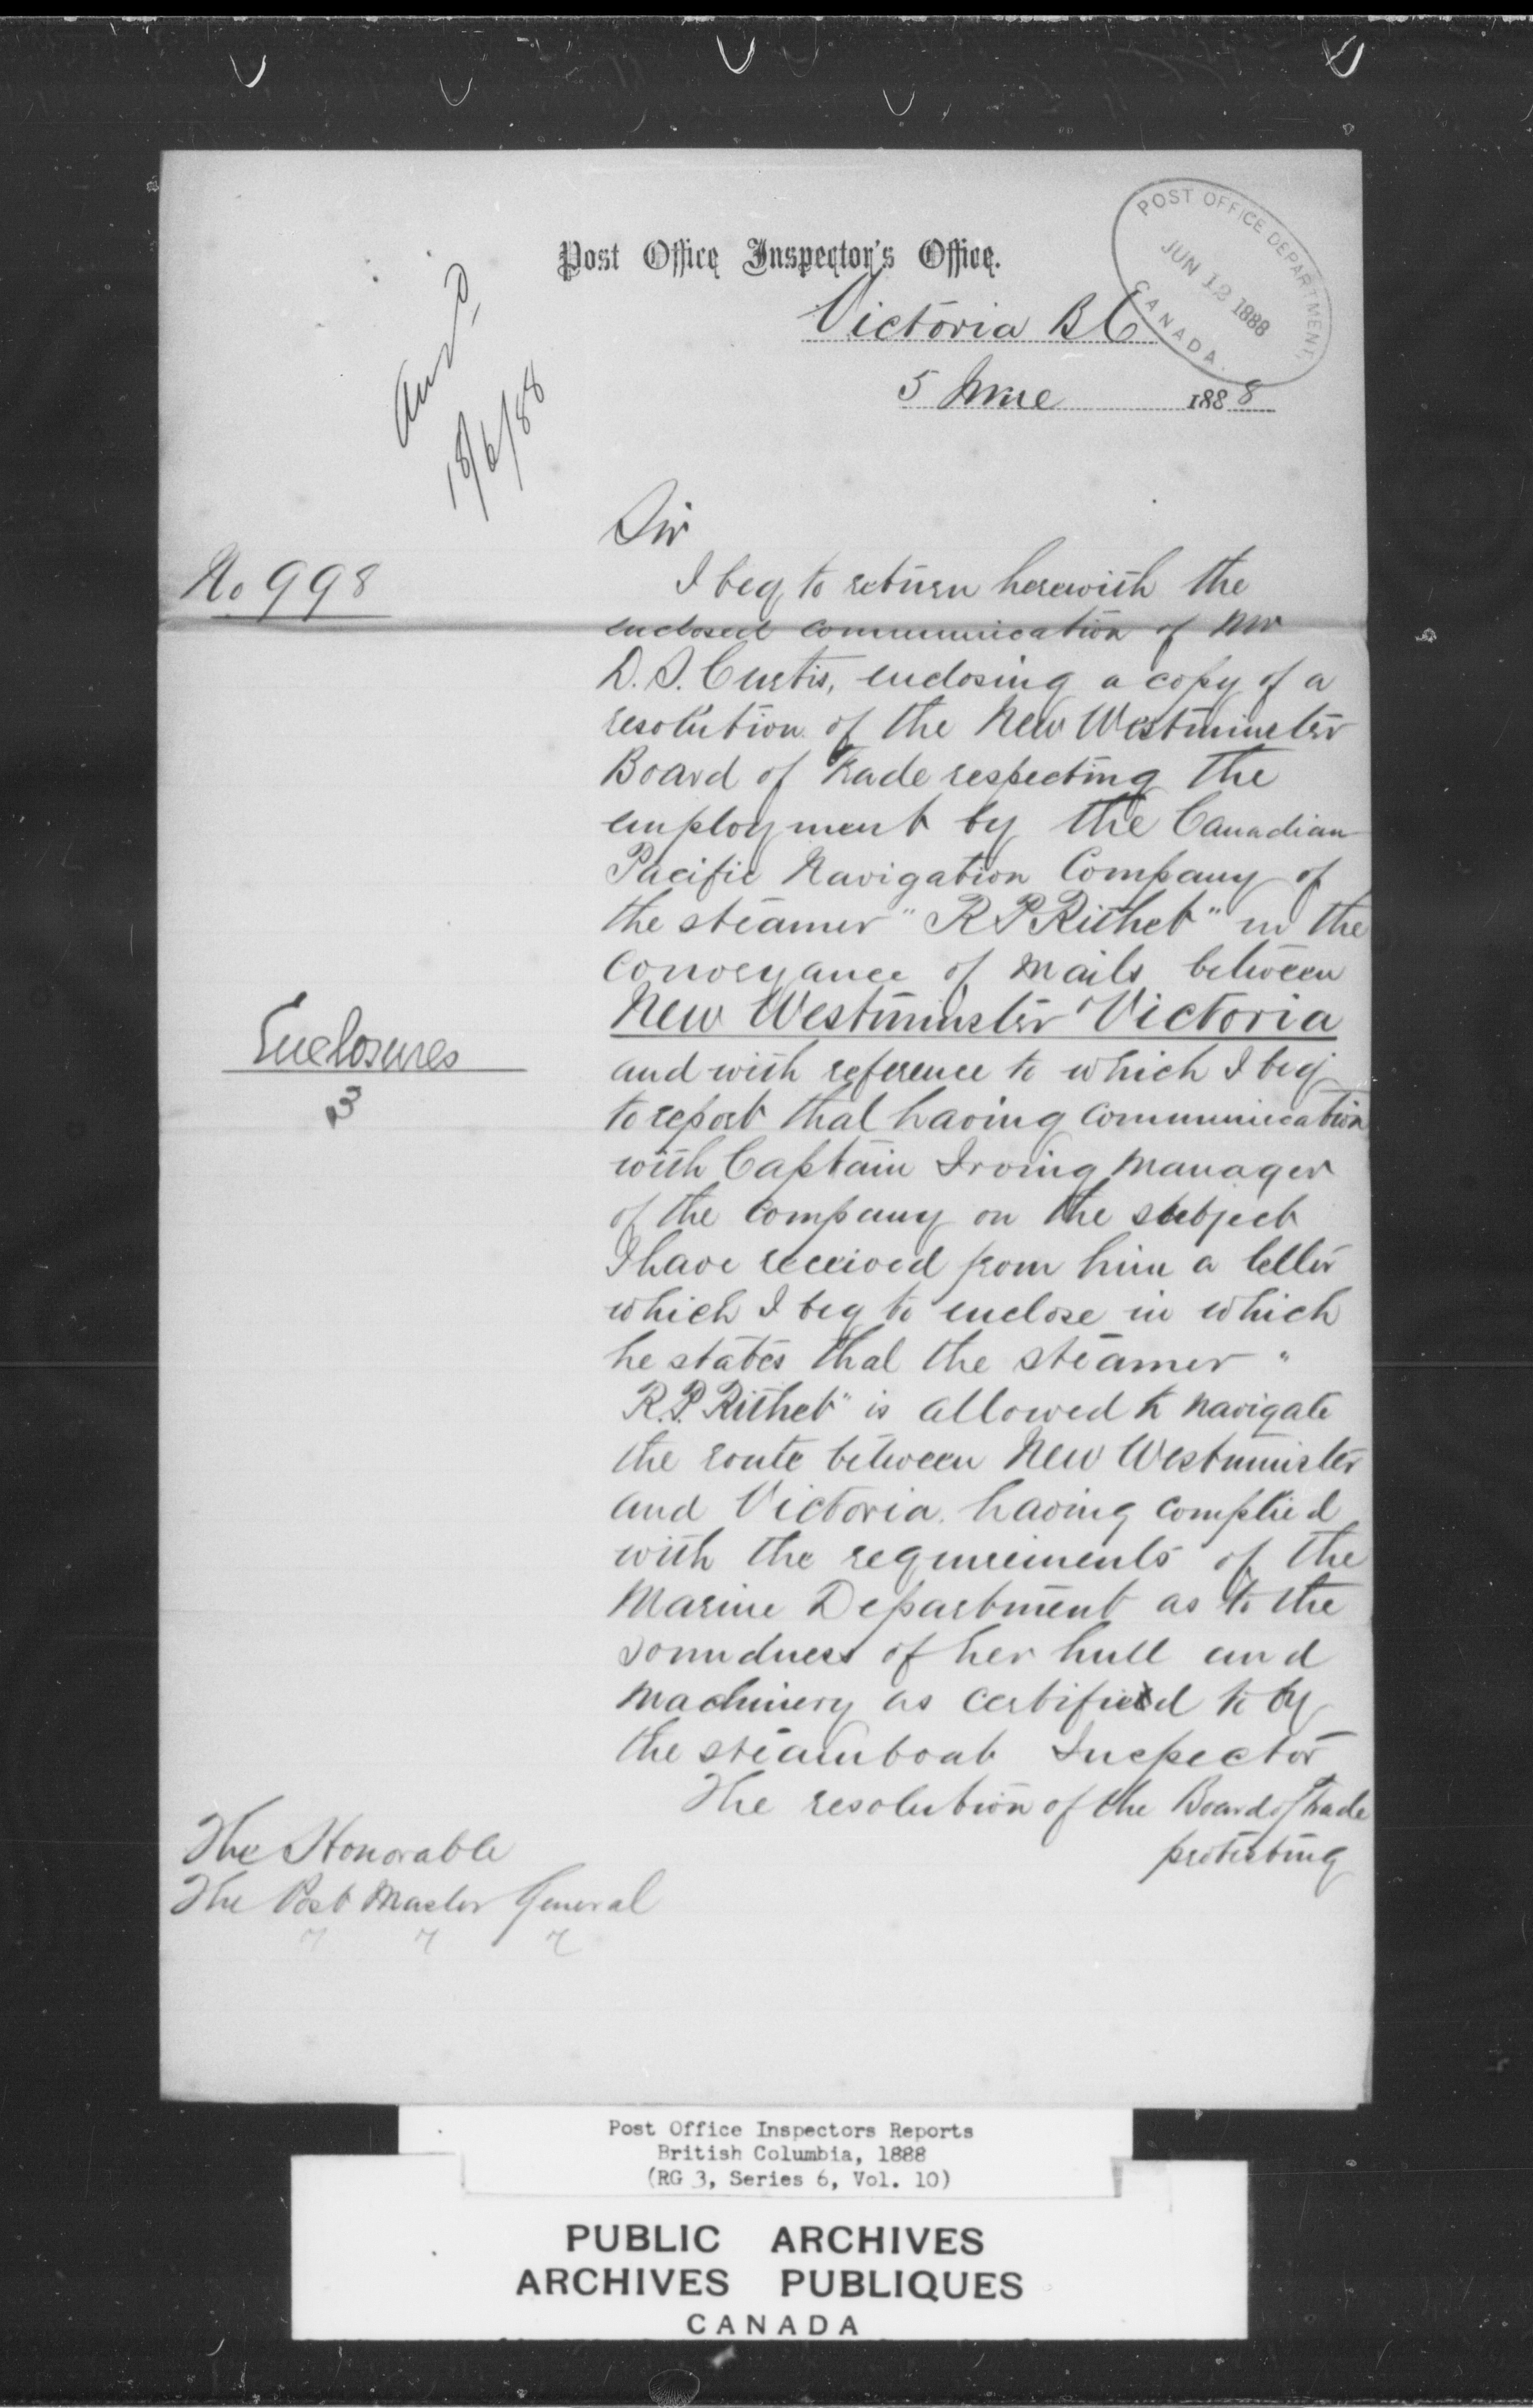 POST OFFICE DEPARTMENT,
JUN 12 1888
CANADA.
Post Office Inspector's Office.
Victoria B C
5 June 1888
Ansd
18/6/88
Sir
No 998
I beg to return herewith the
enclosed communication of Mr
D. S. Curtis, enclosing a copy of a
resolution of the New Westminster
Board of Trade respecting the
employment by the Canadian
Pacific Navigation Company of
the steamer "R P Rithet" in the
conveyance of mails between
New Westminster Victoria
Enclosures
3
and with reference to which I beg
to report that having communication
with Captain Irving Manager
of the Company on the subject
I have received from him a letter
which I beg to enclose in which
he states that the steamer "
R. P. Rithet" is allowed to navigate
the route between New Westminster
and Victoria. having complied
with the requirements of the
Marine Department as to the
soundness of her hull and
machinery as certified to by
the steamboat Inspector
The resolution of the Board of Trade
protesting
The Honorable
The Post Master General
Post Office Inspectors Reports
British Columbia, 1888
(RG 3, Series 6, Vol. 10)
PUBLIC ARCHIVES
ARCHIVES PUBLIQUES
CANADA